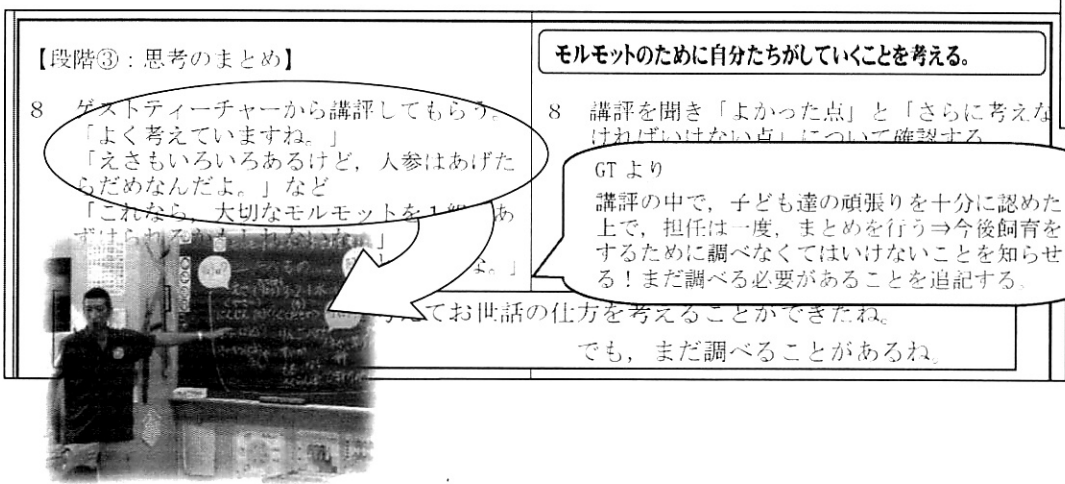 【段階③：思考のまとめ】
8 ゲストティーチャーから講評してもらう。
「よく考えていますね。」
「えさもいろいろあるけど，人参はあげた
らだめなんだよ。」など
「これなら，大切なモルモットを1組にあ
ずけられる
よ。」
モルモットのために自分たちがしていくことを考える。
8 講評を聞き「よかった点」と「さらに考えな
ければいけない点」について確認する
GTより
講評の中で，子ども達の頑張りを十分に認めた
上で，担任は一度，まとめを行う⇒今後飼育を
するために調べなくてはいけないことを知らせ
る！まだ調べる必要があることを追記する。
てお世話の仕方を考えることができたね。
でも，まだ調べることがあるね。